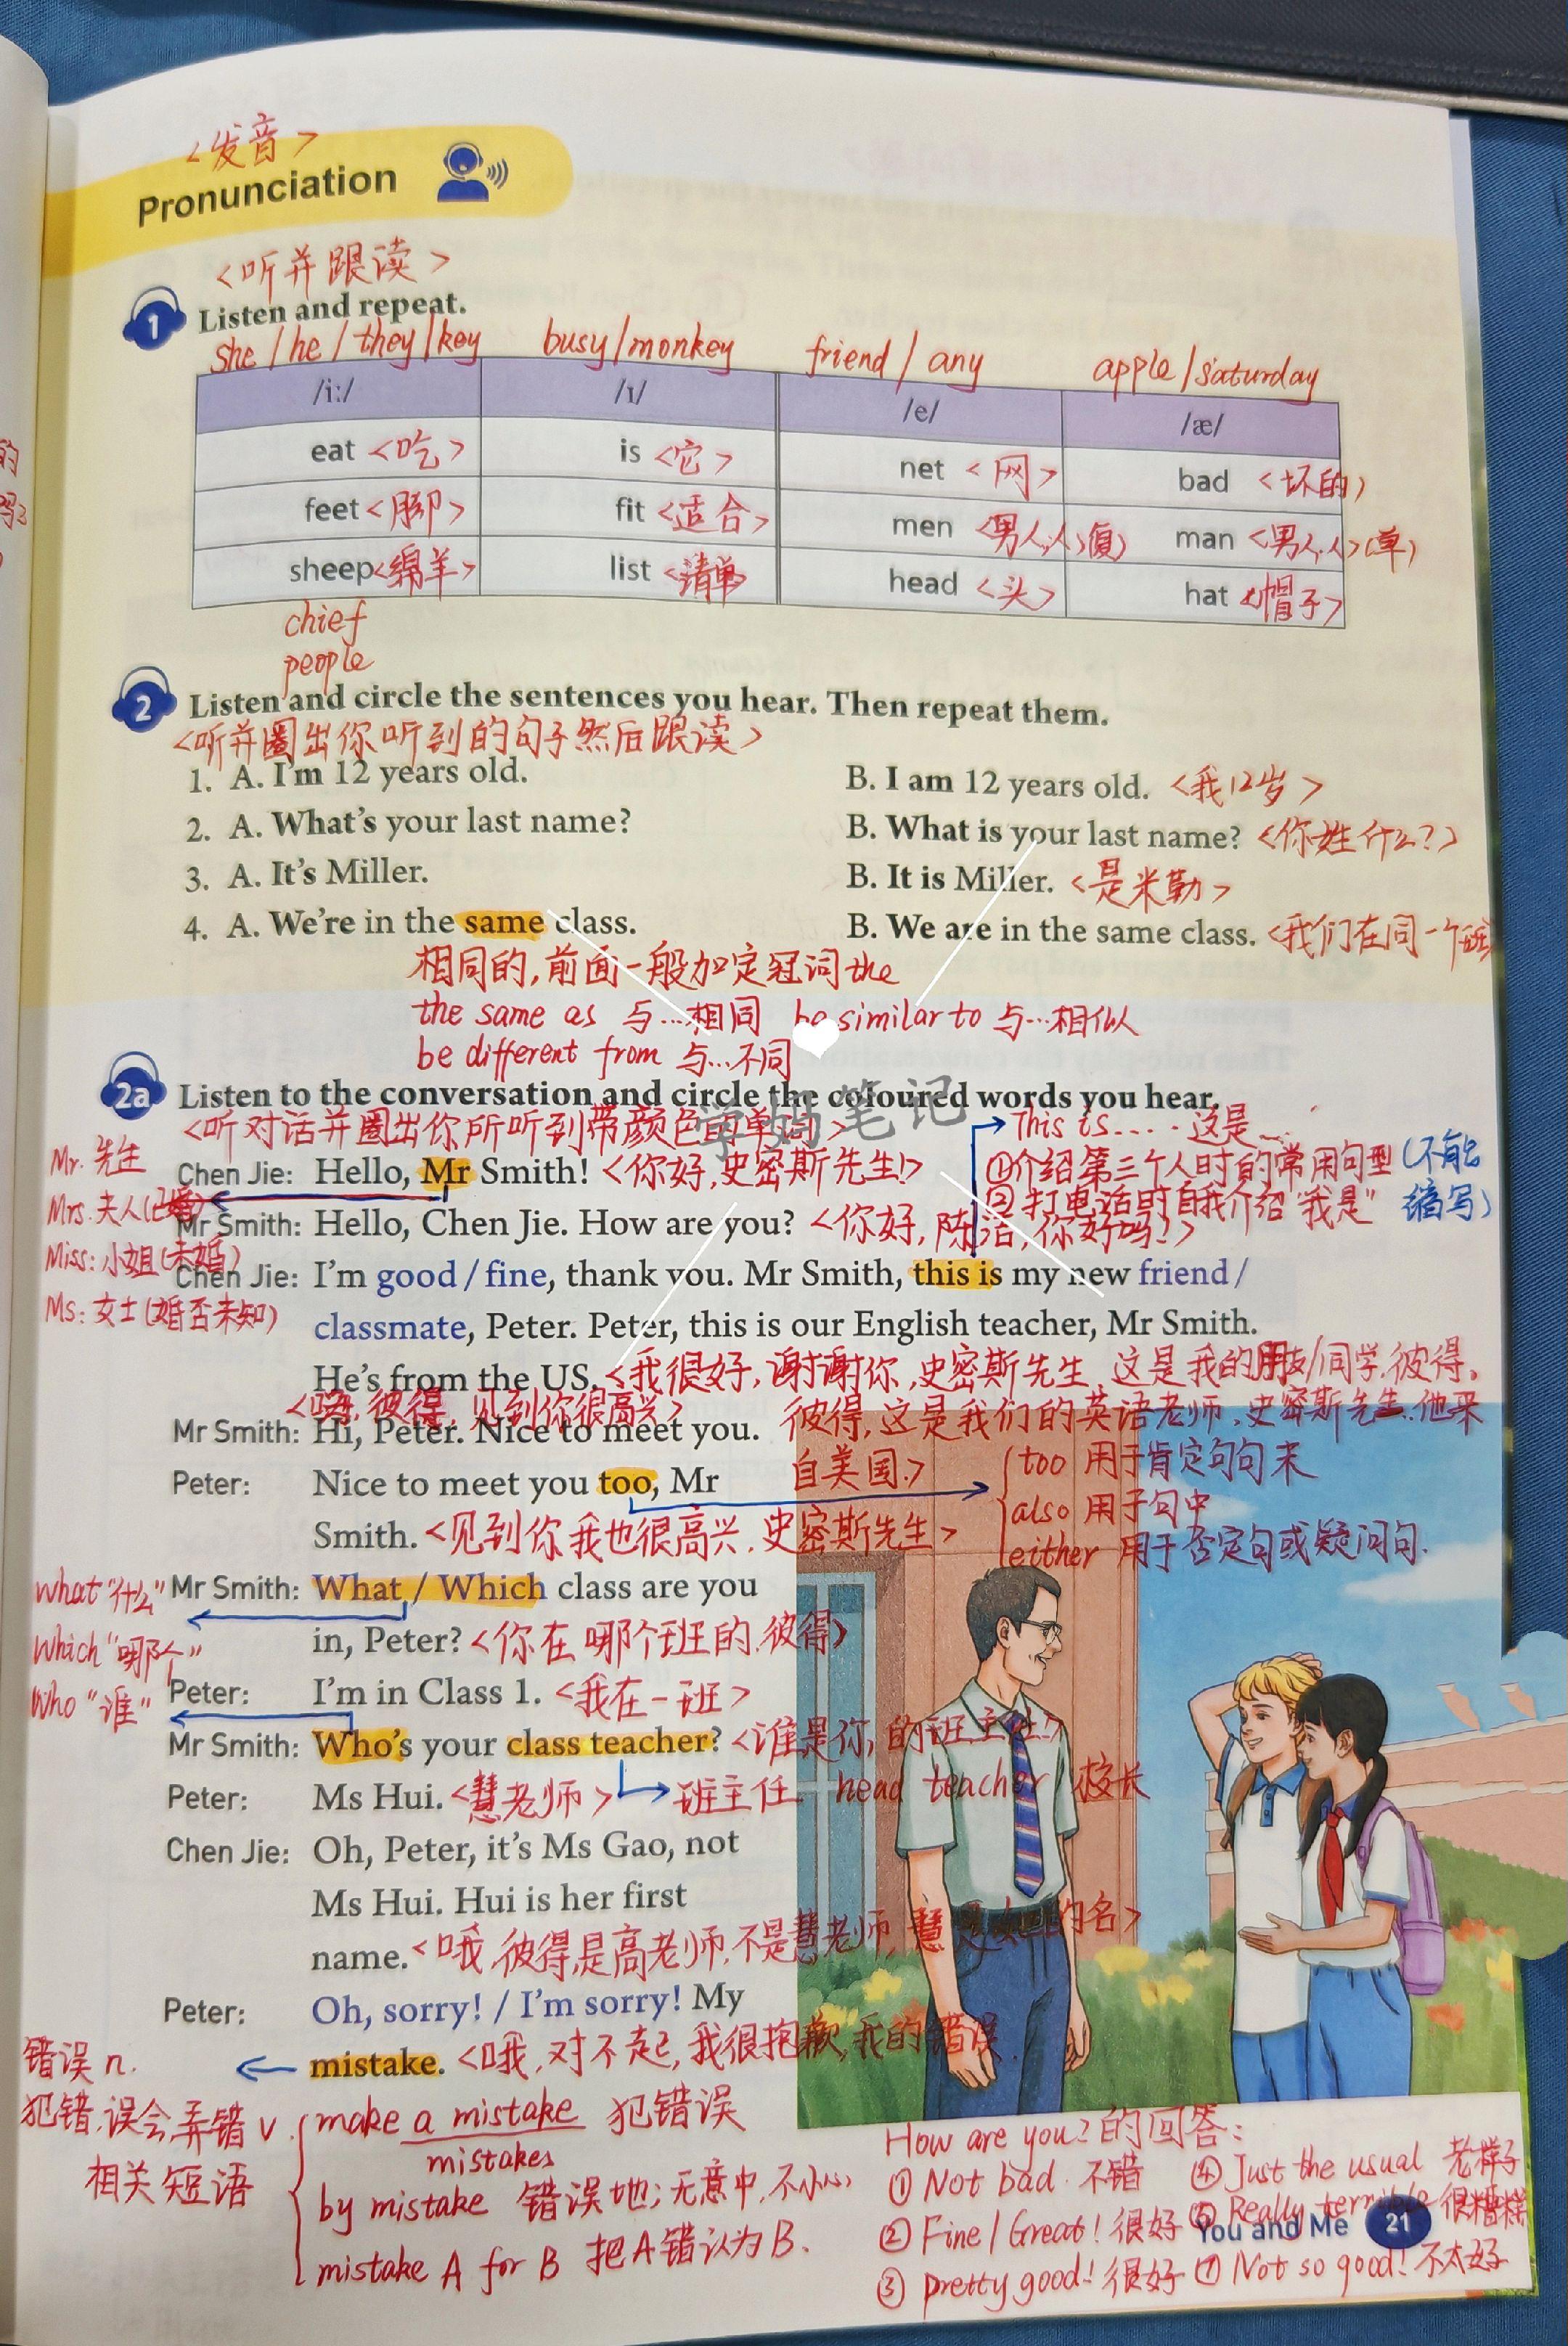 <发音>
Pronunciation
<听并跟读>
1 Listen and repeat.
she / he / they / key busy / monkey friend / any apple / saturday
/iː/ /ɪ/ /e/ /æ/
eat <吃> is <它> net <网> bad <坏的>
feet <脚> fit <适合> men <男人,人>(復) man <男人,人>(单)
sheep <绵羊> list <清单> head <头> hat <帽子>
chief
people
2 Listen and circle the sentences you hear. Then repeat them.
<听并圈出你听到的句子然后跟读>
1. A. I'm 12 years old. B. I am 12 years old. <我12岁>
2. A. What's your last name? B. What is your last name? <你姓什么?>
3. A. It's Miller. B. It is Miller. <是米勒>
4. A. We're in the same class. B. We are in the same class. <我们在同一个班>
相同的,前面一般加定冠词the
the same as 与…相同 be similar to 与…相似
be different from 与…不同
2a Listen to the conversation and circle the coloured words you hear.
<听对话并圈出你所听到带颜色的单词>
学妈笔记
This is..... 这是...
①介绍第三个人时的常用句型(不能
②打电话时自我介绍"我是" 缩写)
Mr. 先生
Mrs. 夫人(已婚)
Miss: 小姐(未婚)
Ms: 女士(婚否未知)
Chen Jie: Hello, Mr Smith! <你好,史密斯先生!>
Mr Smith: Hello, Chen Jie. How are you? <你好,陈洁,你好吗?>
Chen Jie: I'm good / fine, thank you. Mr Smith, this is my new friend /
classmate, Peter. Peter, this is our English teacher, Mr Smith.
He's from the US. <我很好,谢谢你,史密斯先生,这是我的朋友/同学,彼得。
彼得,这是我们的英语老师,史密斯先生.他来
自美国.>
<嗨,彼得,见到你很高兴>
Mr Smith: Hi, Peter. Nice to meet you.
Peter: Nice to meet you too, Mr
Smith. <见到你我也很高兴,史密斯先生>
too 用于肯定句句末
also 用于句中
either 用于否定句或疑问句.
what "什么"
Which "哪个"
Who "谁"
Mr Smith: What / Which class are you
in, Peter? <你在哪个班的,彼得>
Peter: I'm in Class 1. <我在一班>
Mr Smith: Who's your class teacher? <谁是你的班主任?>
Peter: Ms Hui. <慧老师> 班主任 head teacher 校长
Chen Jie: Oh, Peter, it's Ms Gao, not
Ms Hui. Hui is her first
name. <哦,彼得,是高老师,不是慧老师,慧是她的名>
Peter: Oh, sorry! / I'm sorry! My
mistake. <哦,对不起,我很抱歉,我的错误.
错误 n.
犯错,误会,弄错 v.
相关短语
make a mistake 犯错误
mistakes
by mistake 错误地;无意中,不小心
mistake A for B 把A错认为B.
How are you? 的回答:
① Not bad. 不错 ④ Just the usual 老样子
② Fine / Great! 很好 ⑤ Really terrible 很糟糕
③ pretty good! 很好 ⑦ Not so good! 不太好
You and Me 21